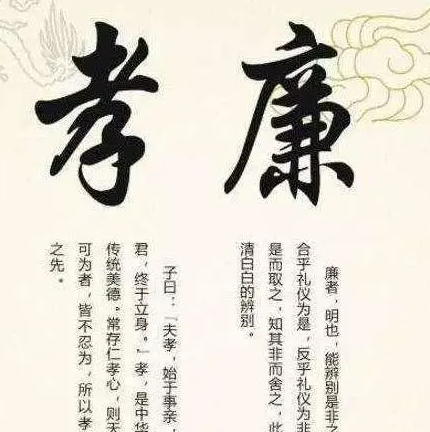 廉
廉者，明也，能辨别是非之
合乎礼仪为是，反乎礼仪为非
是而取之，知其非而舍之，此
清白白的辨别。
孝
子曰：「夫孝，始于事亲，
君，终于立身。」孝，是中华
传统美德。常存仁孝心，则天
可为者，皆不忍为，所以孝
之先。